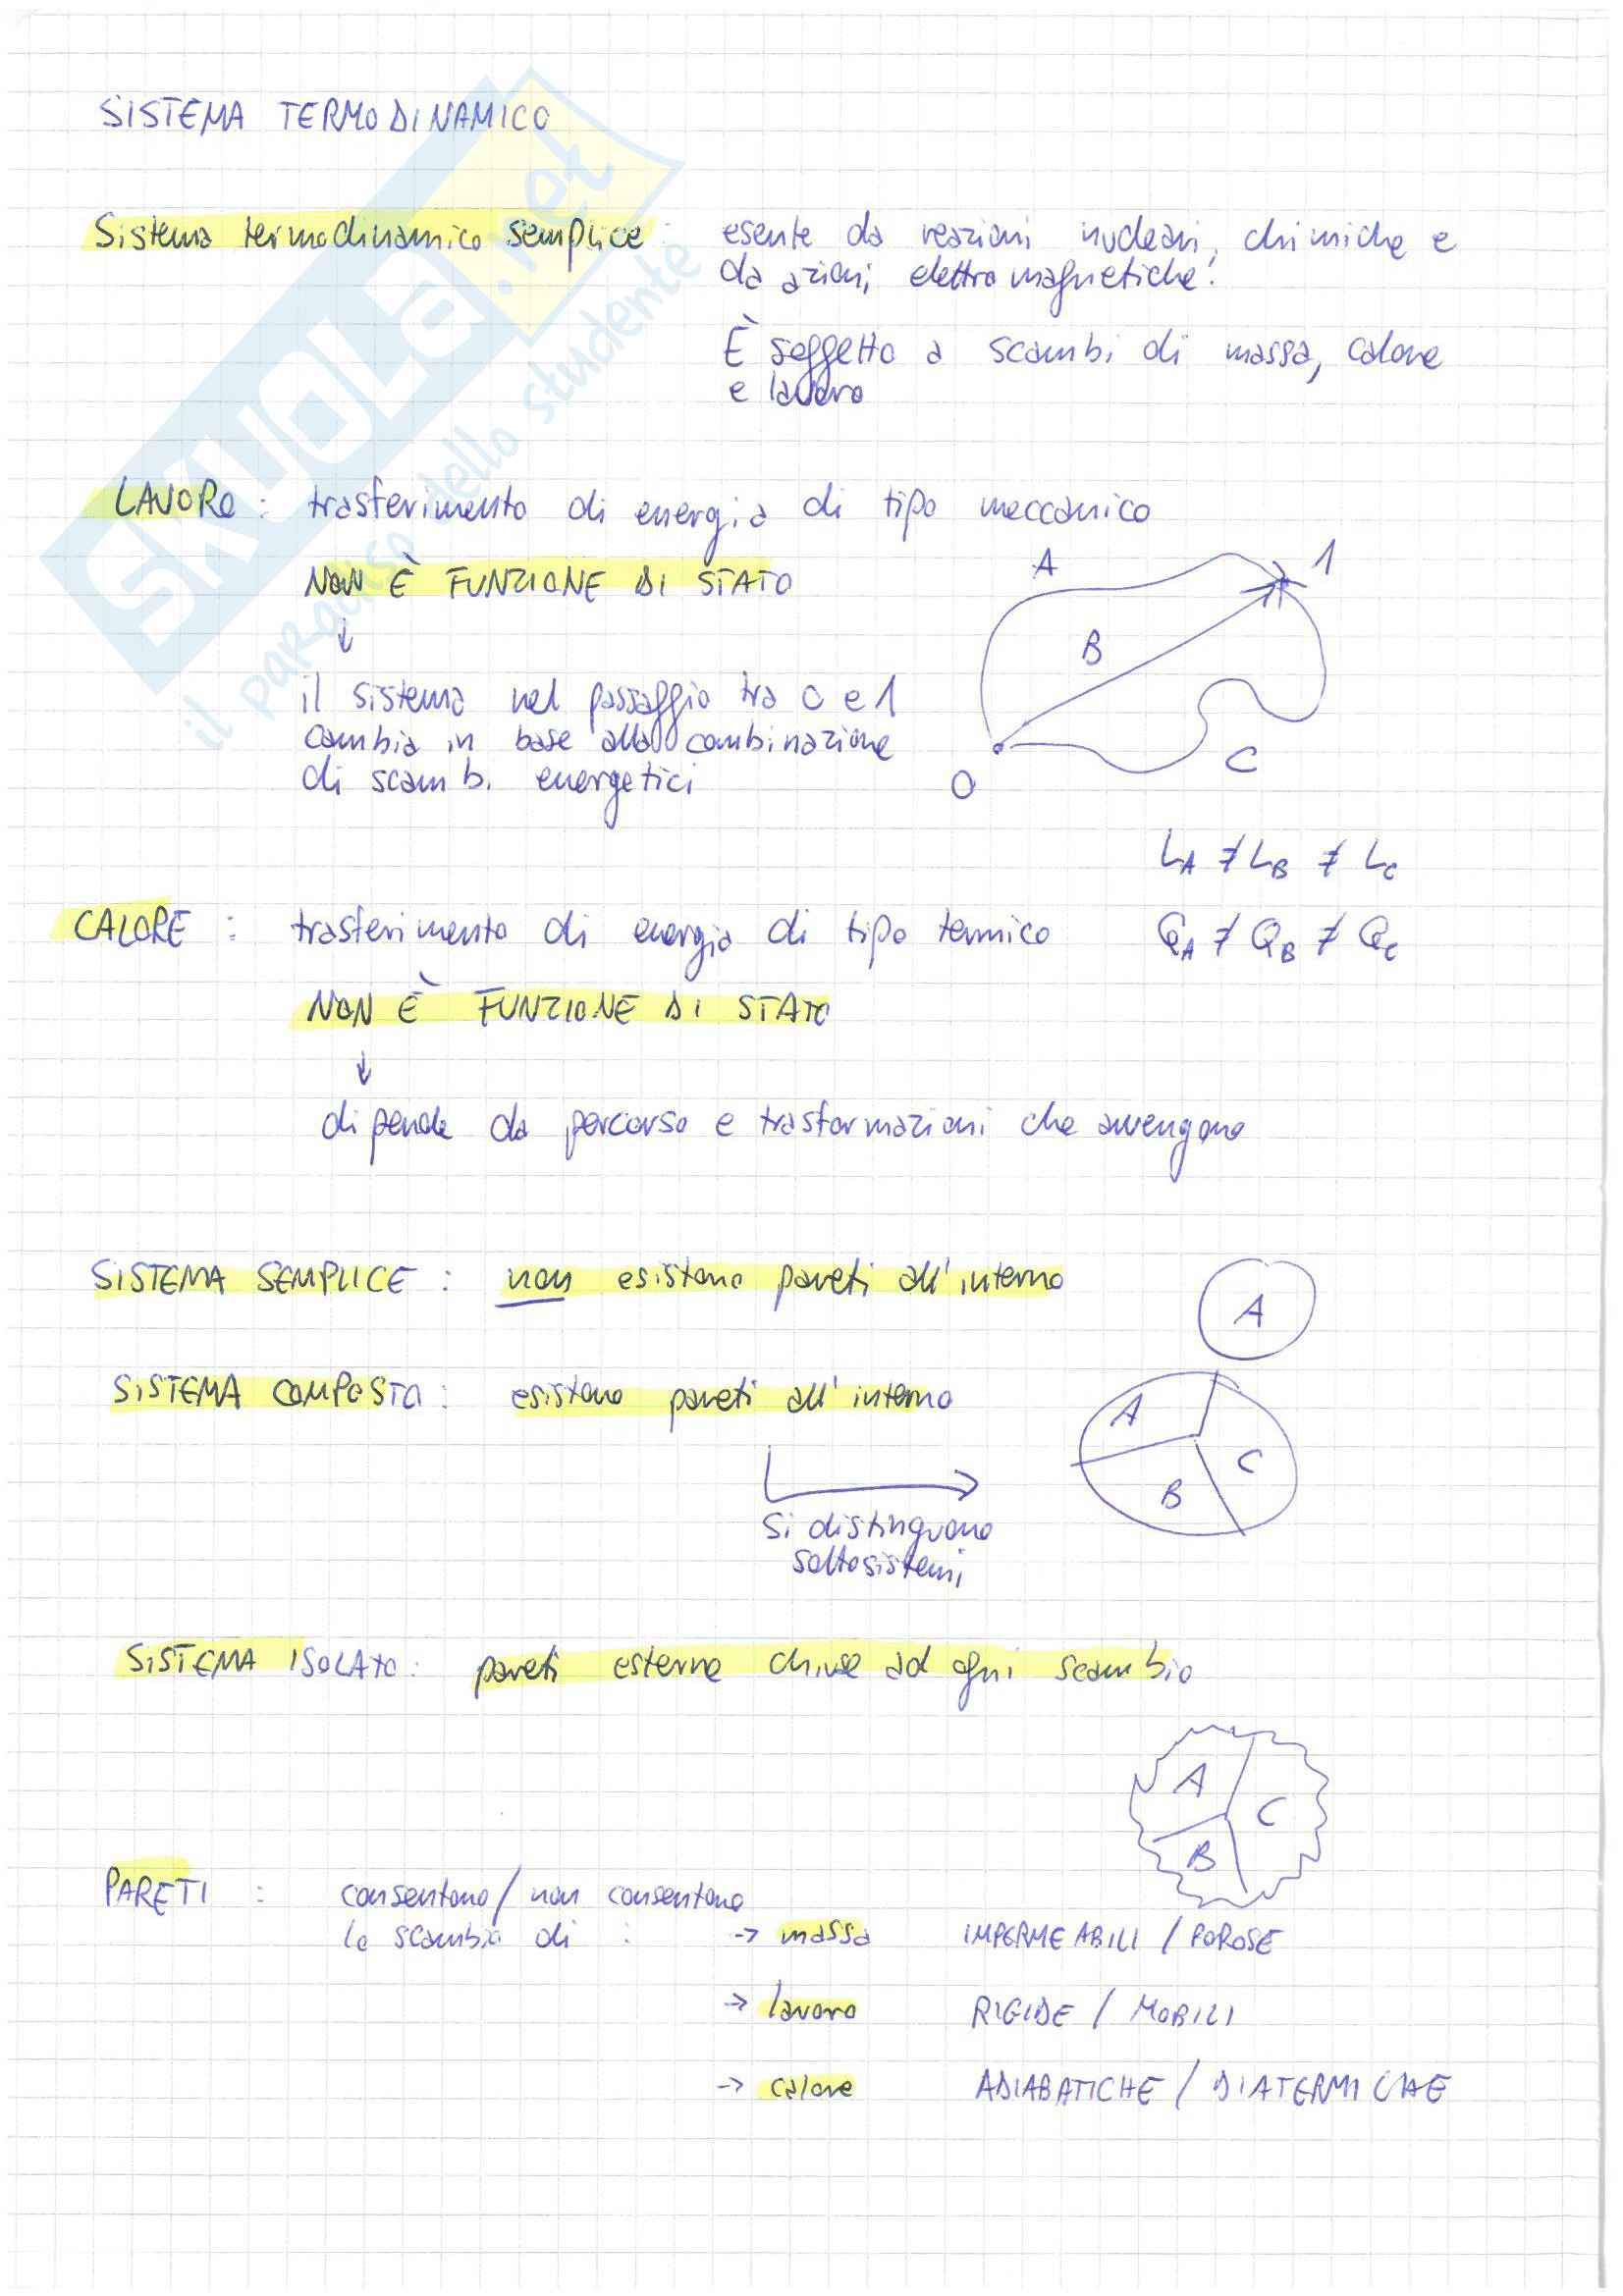 SISTEMA TERMODINAMICO
Sistema termodinamico semplice: esente da reazioni nucleari, chimiche e
da azioni elettromagnetiche.
È soggetto a scambi di massa, calore
e lavoro
LAVORO: trasferimento di energia di tipo meccanico
NON È FUNZIONE DI STATO
↓
il sistema nel passaggio tra 0 e 1
cambia in base alla combinazione
di scambi energetici
A
1
B
C
0
LA ≠ LB ≠ LC
CALORE: trasferimento di energia di tipo termico
QA ≠ QB ≠ QC
NON È FUNZIONE DI STATO
↓
dipende da percorso e trasformazioni che avvengono
SISTEMA SEMPLICE: non esistono pareti all'interno
A
SISTEMA COMPOSTO: esistono pareti all'interno
A
C
B
Si distinguono
sottosistemi
SISTEMA ISOLATO: pareti esterne chiuse ad ogni scambio
A
C
B
PARETI: consentono/non consentono
lo scambio di: → massa IMPERMEABILI / POROSE
→ lavoro RIGIDE / MOBILI
→ calore ADIABATICHE / DIATERMICHE
SKUOLA.net
il paradiso dello studente